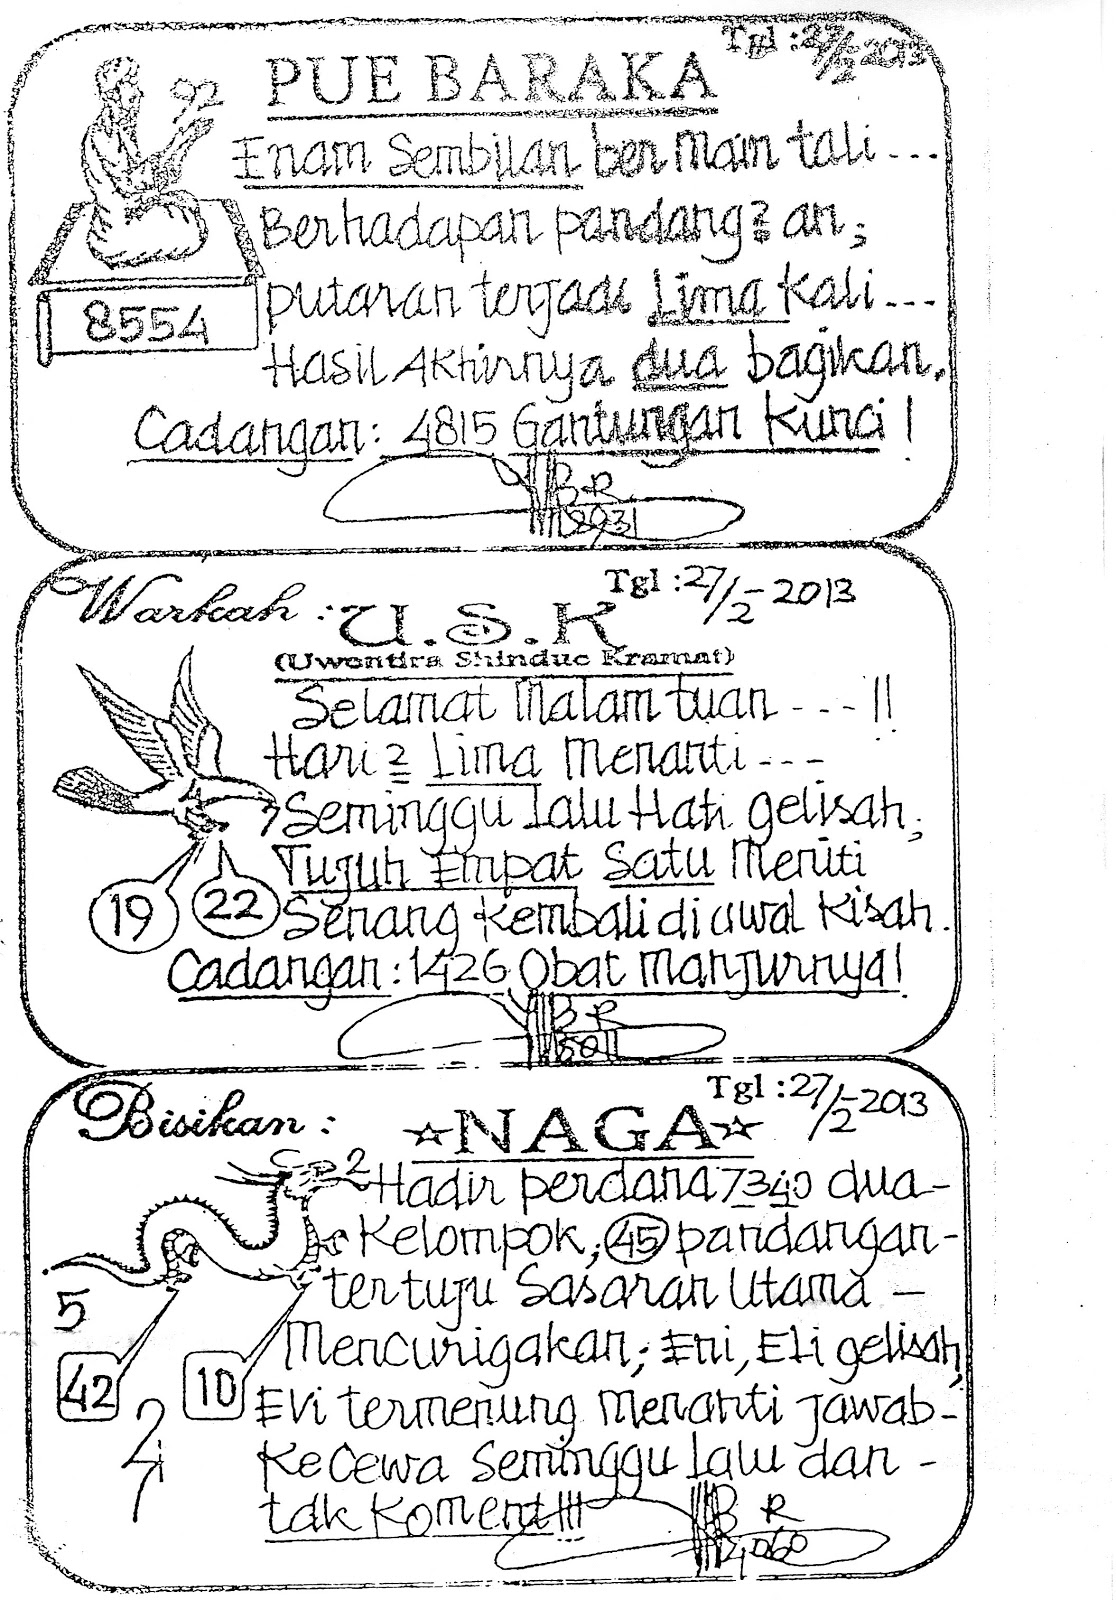 Tgl : 27/2 2013
PUE BARAKA
92
Enam Sembilan bermain tali ...
Berhadapan pandang2 an;
putaran terjadi Lima Kali ...
8554
Hasil Akhirnya dua bagikan.
Cadangan: 4815 Gantungan Kunci !
BR
8931
Warkah : Tgl : 27/2 - 2013
U.S.K
(Uwentira Shinduc Kramat)
Selamat Malam tuan ... !!
Hari 2 Lima Menanti ...
7 Seminggu lalu Hati gelisah;
Tujuh Empat Satu Meniti
19 22 Senang Kembali di awal Kisah.
Cadangan : 1426 Obat Manjurnya!
BR
5011
Bisikan : Tgl : 27/2 - 2013
☆NAGA☆
2 Hadir perdana 7340 dua-
Kelompok; 45 pandangan-
tertuju Sasaran Utama -
5
Mencurigakan; Eni, Eli gelisah,
42 10 Evi termenung Menanti jawab-
Kecewa Seminggu lalu dan -
tdk Koment!!!
B R